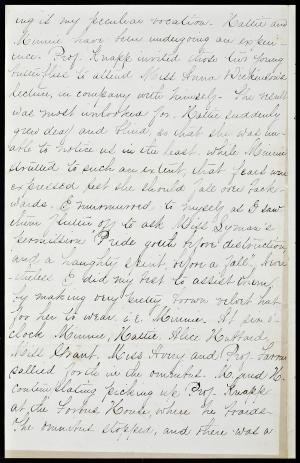 ing is my peculiar vocation. Hattie and
Minnie have been undergoing an exper-
ience. Prof. Knapp invited those two young
butterflies to attend Miss Anna Dickinson's
lecture, in company with himself. The result
was most unlooked for. Hattie suddenly
grew deaf and blind, so that she was un-
able to notice us in the least. while Minnie
strutted to such an extent, that fears were
expressed lest she should fall over back-
wards. I murmurred to myself as I saw
them flutter off to ask Miss Lyman's
permission "Pride goeth before destruction
and a haughty spirit before a fall", Never-
theless I did my best to assist them
by making very pretty brown velvet hat
for her to wear i.e. Minnie. At six o'-
clock Minnie, Hattie, Alice Hubbard,
Miss Grant, Miss Avery and Prof. Farrar
sallied forth in the omnibus. M. and H.
contemplating picking up Prof. Knapp
at the Forbus House, where he boards.
The omnibus stopped, and there was a